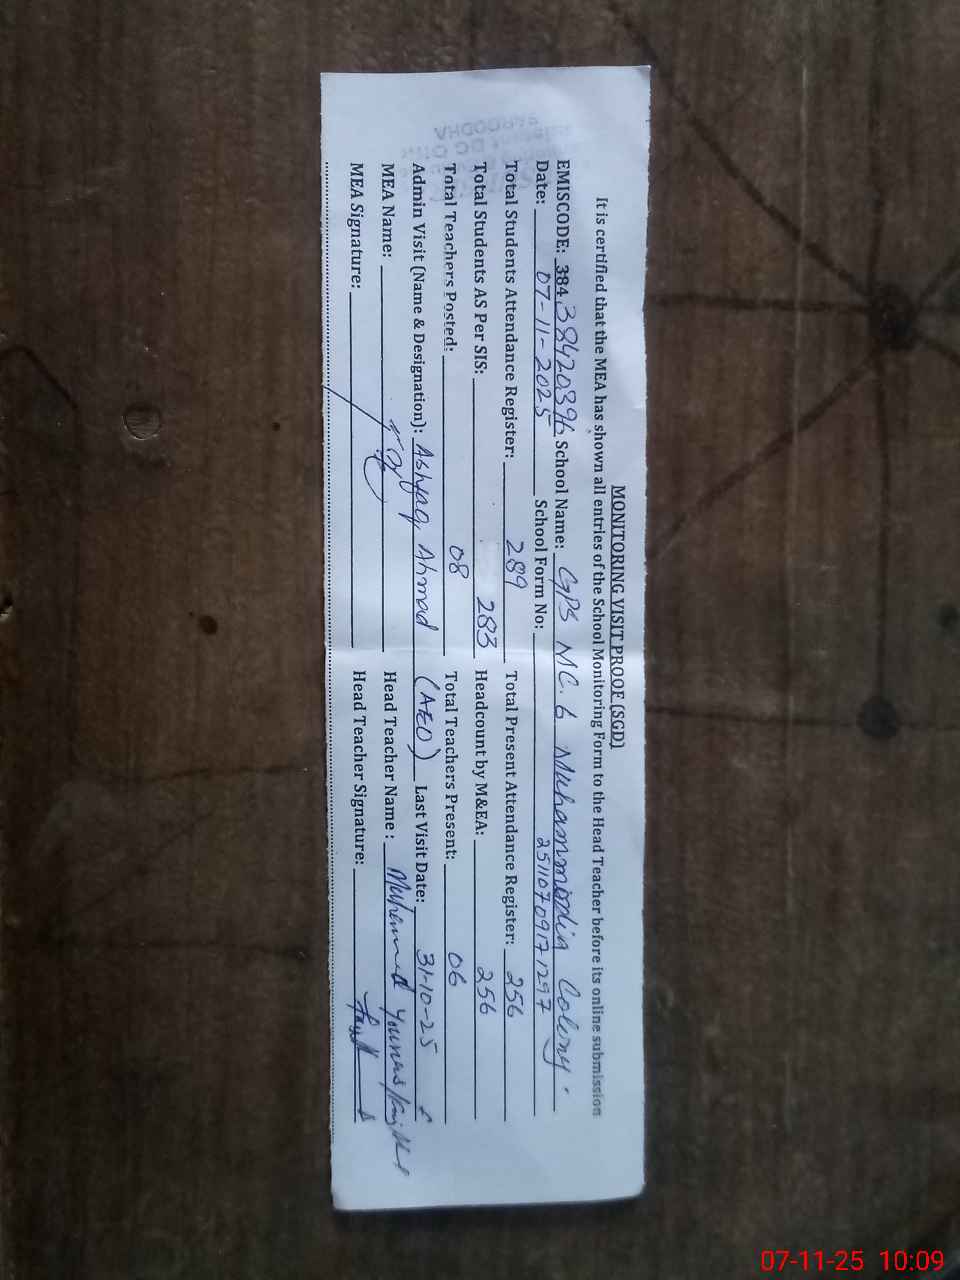 MONITORING VISIT PROOF (SGD)
It is certified that the MEA has shown all entries of the School Monitoring Form to the Head Teacher before its online submission
EMISCODE: 384 38420396 School Name: GPS MC. 6 Muhammindia Colony.
Date: 07-11-2025 School Form No: 25110709171297
Total Students Attendance Register: 289 Total Present Attendance Register: 256
Total Students AS Per SIS: 283 Headcount by M&EA: 256
Total Teachers Posted: 08 Total Teachers Present: 06
Admin Visit (Name & Designation): Ashfaq Ahmad (AEO) Last Visit Date: 31-10-25
MEA Name: Head Teacher Name : Muhammad Younas
MEA Signature: Head Teacher Signature:
SARGODHA
07-11-25 10:09